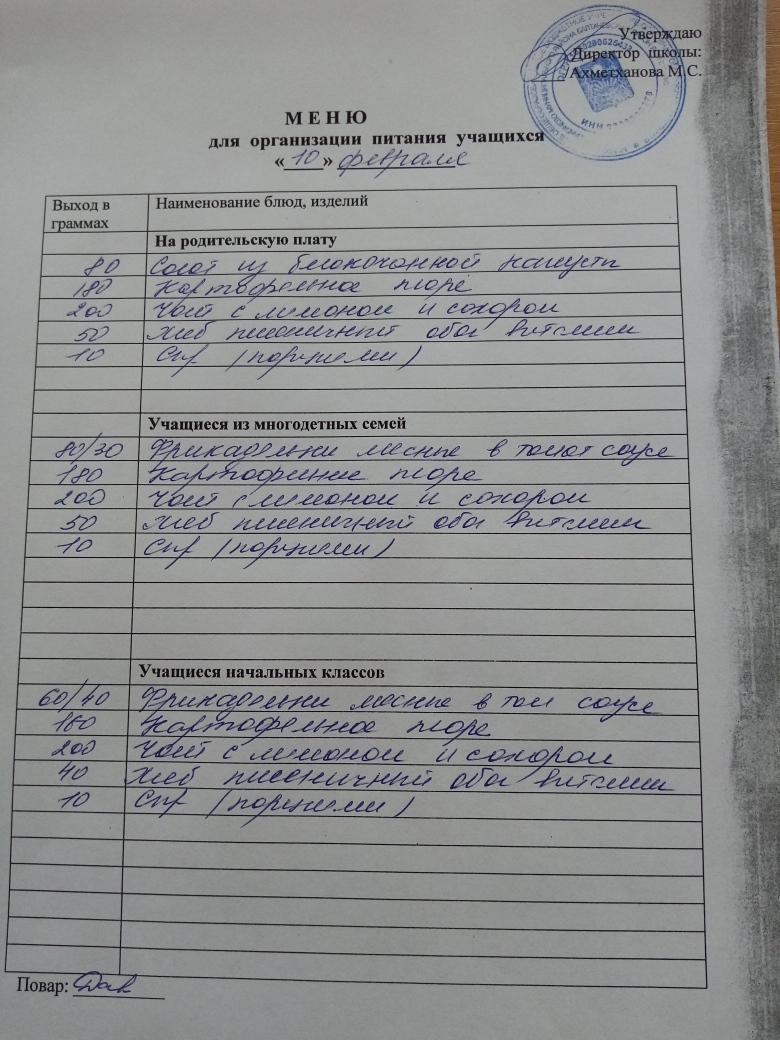 Утверждаю
Директор школы:
Ахметханова М.С.
ИНН
М Е Н Ю
для организации питания учащихся
« 10 » февраля
Выход в граммах Наименование блюд, изделий
На родительскую плату
80 Салат из белокочанной капусты
180 Картофельное пюре
200 Чай с лимоном и сахаром
50 Хлеб пшеничный обог витамин
10 Сыр (порциями)
Учащиеся из многодетных семей
80/30 Фрикадельки мясные в томат соусе
180 Картофельное пюре
200 Чай с лимоном и сахаром
50 Хлеб пшеничный обог витамин
10 Сыр (порциями)
Учащиеся начальных классов
60/40 Фрикадельки мясные в том соусе
160 Картофельное пюре
200 Чай с лимоном и сахаром
40 Хлеб пшеничный обог витамин
10 Сыр (порциями)
Повар: